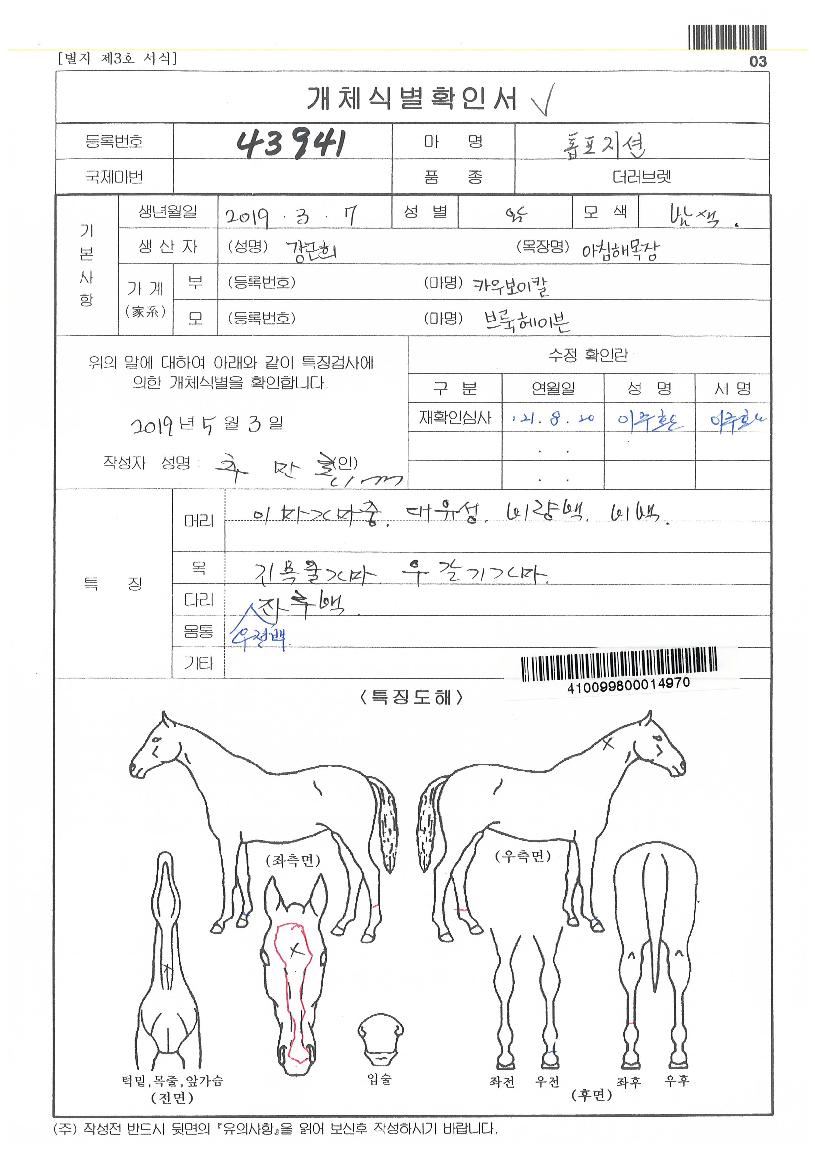 03
[별지 제3호 서식]
개체식별확인서 ✓
등록번호 43941 마 명 톱포지션
국제마번 품 종 더러브렛
기본사항
생년월일 2019 . 3 . 7 성 별 암 모 색 밤색 .
생 산 자 (성명) 강은희 (목장명) 아침해목장
가 계 (家系)
부 (등록번호) (마명) 카우보이칼
모 (등록번호) (마명) 브룩헤이븐
위의 말에 대하여 아래와 같이 특징검사에
의한 개체식별을 확인합니다
2019년 5월 3일
작성자 성명 : 추 만 (인)
수정 확인란
구 분 연월일 성 명 서 명
재확인심사 '21. 8. 20
특 징
머리 이마가마중. 대유성. 비량백. 비백.
목 기목줄가마. 우갈기가마.
다리 좌후백
몸통 우전백
기타
410099800014970
<특징도해>
(좌측면) (우측면)
턱밑,목줄,앞가슴
(전면)
입술
좌전 우전 좌후 우후
(후면)
(주) 작성전 반드시 뒷면의 『유의사항』을 읽어 보신후 작성하시기 바랍니다.